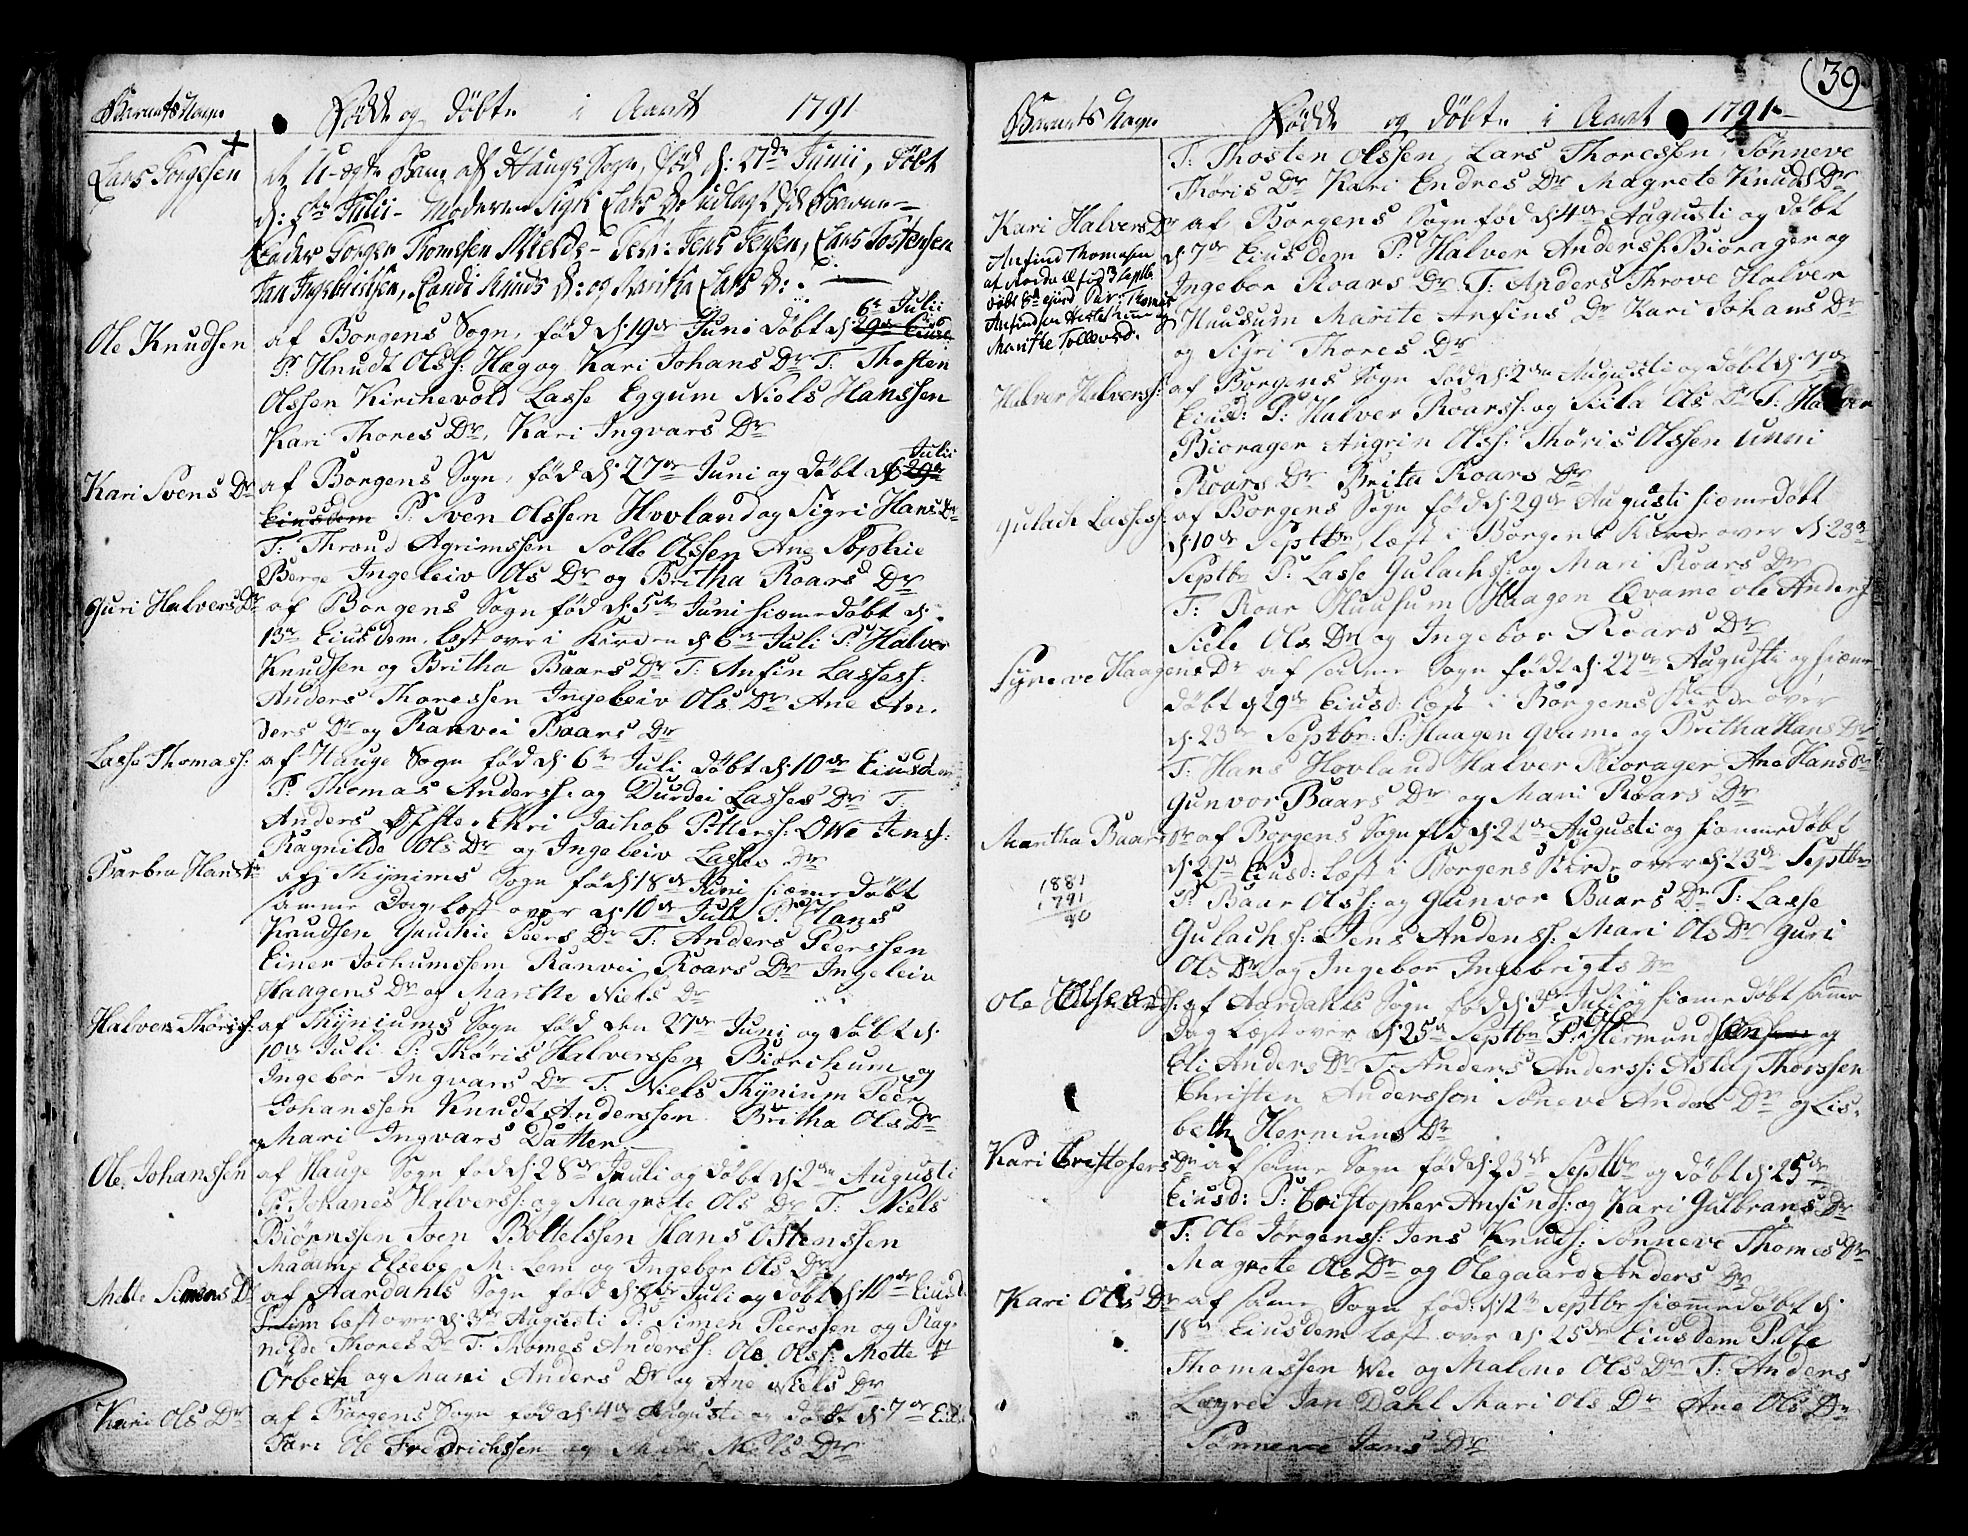 Barnets Nagn
Födde og döbte i Aaret 1791
Lars Gorgesen
et U-ægte Barn af Haugs Sogn, föd d: 27de Junii, döbt
d: Julii - Moderen Sigri Lars D: udlagde til Barne-
Fader Gorger Thomesen Mielde - Test: Jens Jensen, Lars Tostensen
Jan Ingebrigtsen, Randi Knuds D: og Maritha Lars D:
Ole Knudsen
af Borgens Sogn, föd d: 19de Juni döbt d: 29de Eiusd 6te Julii
P: Knudt Olss: Hæg og Kari Johans Dr T: Thosten
Olssen Kirchevold Lasse Eggum Niels Hanssen
Kari Thores Dr, Kari Ingvars Dr
Kari Svens Dr
af Borgens Sogn, föd d: 27de Juni og döbt d 6 29de Julii
Eiusdem P: Sven Olssen Hovland og Sigri Hans Dr
T: Thrond Agrimssen Solle Olssen Ane Sophie
Berge Ingeleiv Ols Dr og Britha Roars Dr
Guri Halvers Dr
af Borgens Sogn föd d: 5te Juni hiemedöbt d:
13de Eiusdem, læst over i Kirken d 6te Juli P: Halver
Knudsen og Britha Baars Dr T: Anfin Lassess:
Anders Thoressen Ingeleiv Ols Dr Ane An-
ders Dr og Ranvei Baars Dr
Lasse Thomass:
af Hauge Sogn föd d: 6te Juli döbt d: 10de Eiusdem
P: Thomas Anderss: og Durdei Lasses Dr T:
Anders Ofste Ehri Jachob Pitterss: Owe Jenss:
Ragnilde Ols Dr og Ingeleiv Lasses Dr
Barbra Hans Dr
af Thynims Sogn föd d 18de Juni hiemedöbt
samme Dag, læst over d: 10de Juli P: Hans
Knudsen Gauchie Peers Dr T: Anders Peerssen
Einer Jochumssem Ranvei Roars Dr Ingeleiv
Haagens Dr og Marthe Niels Dr
Halver Thöriss:
af Thyniums Sogn föd den 27de Juni og döbt d:
10de Juli P: Thöris Halverssen Biörchum og
Ingebor Ingvars Dr T: Niels Thynium Peer
Johanssen Knudt Anderssem Britha Ols Dr
og Mari Ingvars Datter
Ole Johanssen
af Hauge Sogn föd d: 28de Juli og döbt d: 2de Augusti
P: Johanes Halverss: og Magrete Ols Dr T: Niels
Biörnssen Joen Bottelssen Hans Ostenssen
Madame Elsebe M. Lem og Ingebor Ols Dr
Mette Simens Dr
af Aardahls Sogn föd d Juli og döbt d: 10de Eiusd
P: Sim læst over d: 3de Augusti P: Simen Peerssen og Rag-
nilde Thores Dr T: Thomes Anderss: Ole Olss: Mette
Orbech og Mari Anders Dr og Ane Niels Dr
Kari Ols Dr
af Borgens Sogn föd d: 4de Augusti og döbt d: 7de Eiusd
Pari Ole Fredrichssen og Mari Niels Dr
39
Barnets Nagn
Födde og döbte i Aaret 1791
T: Thosten Olssen, Lars Thoressen, Sönneve
Thöris Dr Kari Endres Dr Magrete Knuds Dr
Kari Halvers Dr
af Borgens Sogn föd d 4de Augusti og döbt
d: 7de Eiusdem P: Halver Anderss: Biorager og
Ingebor Roars Dr T: Anders Throve Halver
Huusum Marite Anfins Dr Kari Johans Dr
og Sigri Thores Dr
Anfind Thomesen
af Aardal föd 3 Septb
döbt 8d ejusd Par: Thomas
Anfindsen Hereshiem og
Marithe Tollevsd.
Halver Halverss:
af Borgens Sogn föd d: 2de Augusti og döbt d: 7de
Eiusd: P: Halver Roarss: og Siela Ols Dr T: Halver
Biorager Angrin Olss: Thöris Olssen Unni
Roars Dr Brita Roars Dr
Gulach Lassess:
af Borgens Sogn föd d: 29de Augusti hiemedöbt
d: 10de Septbr læst i Borgens Kirche over d: 23de
Septbr P: Lasse Gulachs: og Mari Roars Dr
T: Roar Huusum Haagen Qvame Ole Anders:
Siele Ols Dr og Ingebor Roars Dr
Syneve Haagens Dr
af samme Sogn födt d: 22de Augusti og hieme
döbt d 29de Eiusd: læst i Borgens Kirche over
d: 23de Septbr: P: Haagen Qvame og Britha Hans Dr
T: Hans Hovland Halver Biorager Ane Hans Dr
Gunvor Baars Dr og Mari Roars Dr
Martha Baars Dr
af Borgens Sogn föd d: 22de Augusti og hiemmedöbt
d: 25de Eiusd: læst i Borgens Kirche over d: 23de Septbr
P: Baar Olss: og Gunvor Baars Dr T: Lasse
Gulachs: Jens Anderss: Mari Ols Dr Guri
Ols Dr og Ingebor Ingebrigts Dr
1881
1791
90
Ole
af Aardahls Sogn föd d: Juli og hiemedöbt same
Dag læst over d: 25de Septbr P: Ole Hermundsen og
Eli Anders Dr T: Anders Anderss: Aslag Thorssen
Christen Andersson Söneve Anders Dr og Lis-
beth Hermuns Dr
Kari Cristofers Dr
af same Sogn föd d: 23de Septbr og döbt d: 25de
Eiusd: P: Cristopher Anfinds: og Kari Gulbrans Dr
T: Ole Jörgenss: Jens Knuds: Sönneve Thomes Dr
Magrete Ols Dr og Olegaard Anders Dr
Kari Ols Dr
af same Sogn föd: d: 12te Septbr hiemedöbt d:
18de Eiusdem læst over d: 25de Eiusdem P: Ole
Thomassen Wee og Malene Ols Dr T: Anders
Lægrei Jan Dahl Mari Ols Dr Ane Ols Dr
Sönneve Jans Dr